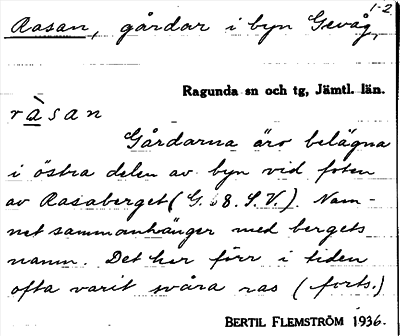 1-2
Rasan, gårdar i byn Gevåg,
Ragunda sn och tg, Jämtl. län.
ràsan
Gårdarna äro belägna
i östra delen av byn vid foten
av Rasaberget (G. 68. S.V.). Nam-
net sammanhänger med bergets
namn. Det har förr i tiden
ofta varit svåra ras (forts.)
BERTIL FLEMSTRÖM 1936.